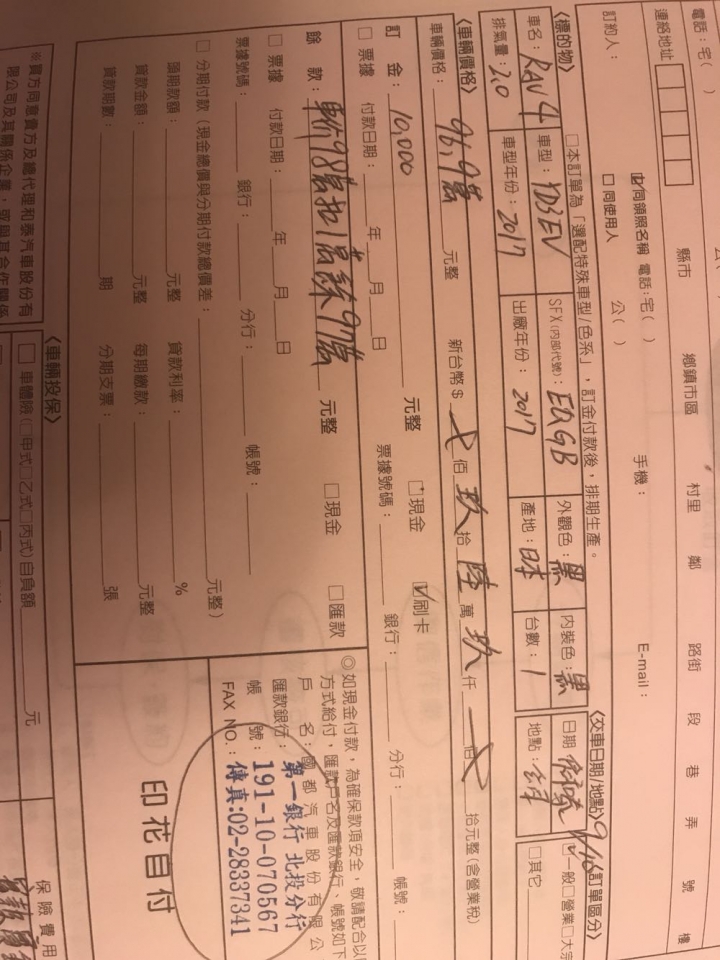 電話：宅（　）
連絡地址 縣市 鄉鎮市區 村里 鄰 路街 段 巷 弄 號 樓
訂約人： ☑同領照名稱 電話：宅（　） 手機： E-mail：
□同使用人 公（　）
〈標的物〉 □本訂單為「選配特殊車型/色系」，訂金付款後，排期生產。
〈交車日期/地點〉 9/16 〈訂單區分〉
車名：RAV4 車型：YD3EV SFX(內部代號)：EQGB 外觀色：黑 內裝色：黑 日期 □一般□營業□大宗
排氣量：2.0 車型年份：2017 出廠年份：2017 產地：日本 台數：1 地點： □其它
〈車輛價格〉
車輛價格：96,9萬 元整 新台幣$ 佰 玖 拾 陸 萬 玖 仟 佰 拾元整(含營業稅)
訂　金：10,000 元整 □現金 ☑刷卡
□票據 付款日期： 年 月 日 票據號碼： 銀行： 分行： 帳號：
餘　款：車價98萬扣1萬餘97萬 元整 □現金 □匯款
□票據 付款日期： 年 月 日
票據號碼： 銀行： 分行： 帳號：
□分期付款（現金總價與分期付款總價差： 元整）
頭期款額： 元整 貸款利率： %
貸款金額： 元整 每期繳款： 元整
貸款期數： 期 分期支票： 張
◎如現金付款，為確保款項安全，敬請配合以
方式給付，匯款戶名及匯款銀行、帳號如下
戶　名：國都汽車股份有限公
匯款銀行：第一銀行 北投分行
帳　號：191-10-070567
FAX NO.：傳真:02-28337341
印花自付
※賣方同意貴方及總代理和泰汽車股份有
限公司及其關係企業，或與其合作關係
〈車輛投保〉
□ 車體險(□甲式□乙式□丙式)自負額 元
保險費用